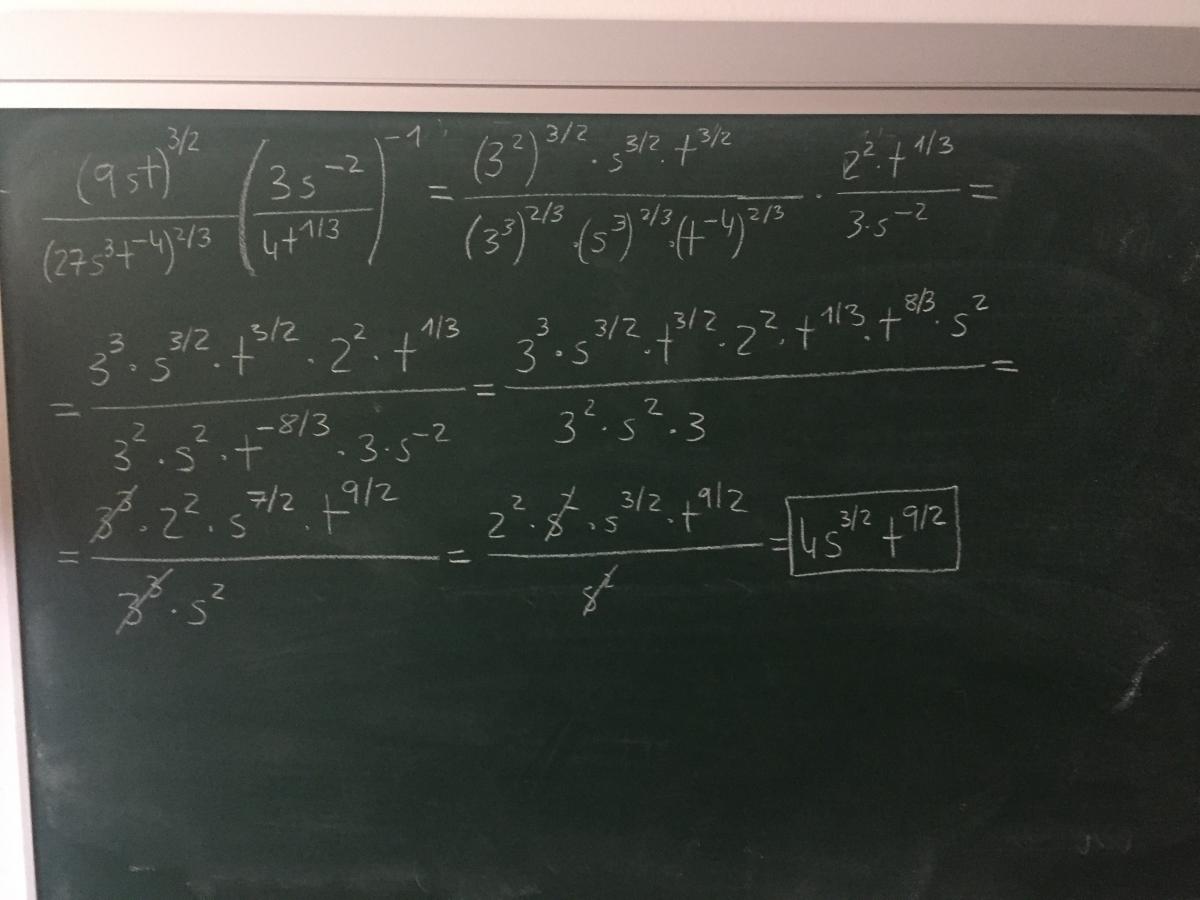 (9st)^{3/2} / (27s^3t^{-4})^{2/3} (3s^{-2} / 4t^{1/3})^{-1} = (3^2)^{3/2} · s^{3/2} · t^{3/2} / (3^3)^{2/3} · (s^3)^{2/3} · (t^{-4})^{2/3} · 2^2 · t^{1/3} / 3 · s^{-2} =
= 3^3 · s^{3/2} · t^{3/2} · 2^2 · t^{1/3} / 3^2 · s^2 · t^{-8/3} · 3 · s^{-2} = 3^3 · s^{3/2} · t^{3/2} · 2^2 · t^{1/3} · t^{8/3} · s^2 / 3^2 · s^2 · 3 =
= 3^3 · 2^2 · s^{7/2} · t^{9/2} / 3^3 · s^2 = 2^2 · s^2 · s^{3/2} · t^{9/2} / s^2 = 4s^{3/2} t^{9/2}